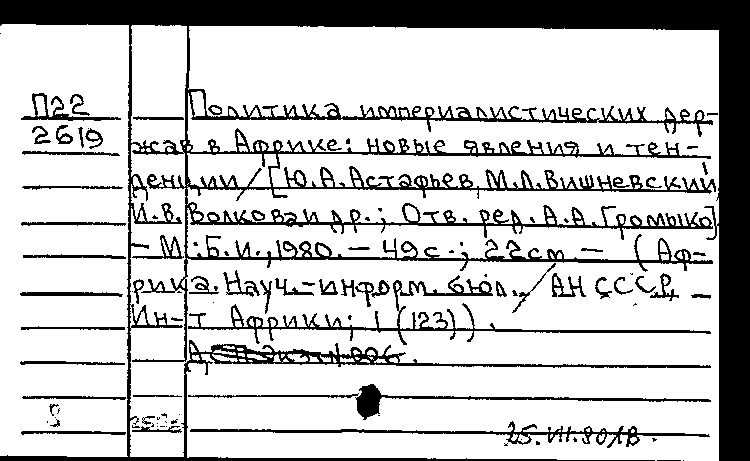 П22
2619
Политика империалистических дер-
жав в Африке: новые явления и тен-
денции / [Ю.А.Астафьев, М.Л.Вишневский,
И.В.Волкова и др.; Отв. ред. А.А.Громыко]
– М.: Б.И., 1980. – 49с.; 22см – (Аф-
рика. Науч.-информ. бюл. / АН СССР, –
Ин-т Африки; 1 (123)).
25.VII.80